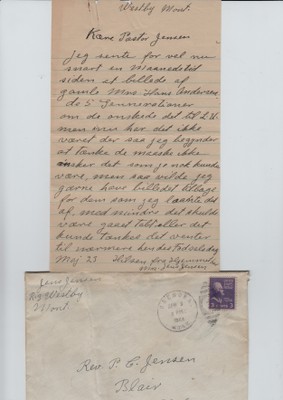 Westby Mont.
Kære Pastor Jensen
Jeg sente for vel nu
snart en Maanedstid
siden et billede af
gamle Mrs. Hans Andersen
de 5 Gennerationer
om de ønskede det til L.U.
men min har det ikke
været der saa jeg begynder
at tænke de maaske ikke
ønsker det som jo nok kunde
være, men saa vilde jeg
gerne have billedet tilbage
for dem som jeg laante det
af, med mindre det skulde
være gaaet tabt eller det
kunde tænkes det venter
til nærmere hendes Fødselsdag
Maj 23. Hilsen fra Hjemmet
Mrs Jens Jensen
Jens Jensen
Westby
Mont.
Rev. P. C. Jensen
Blair